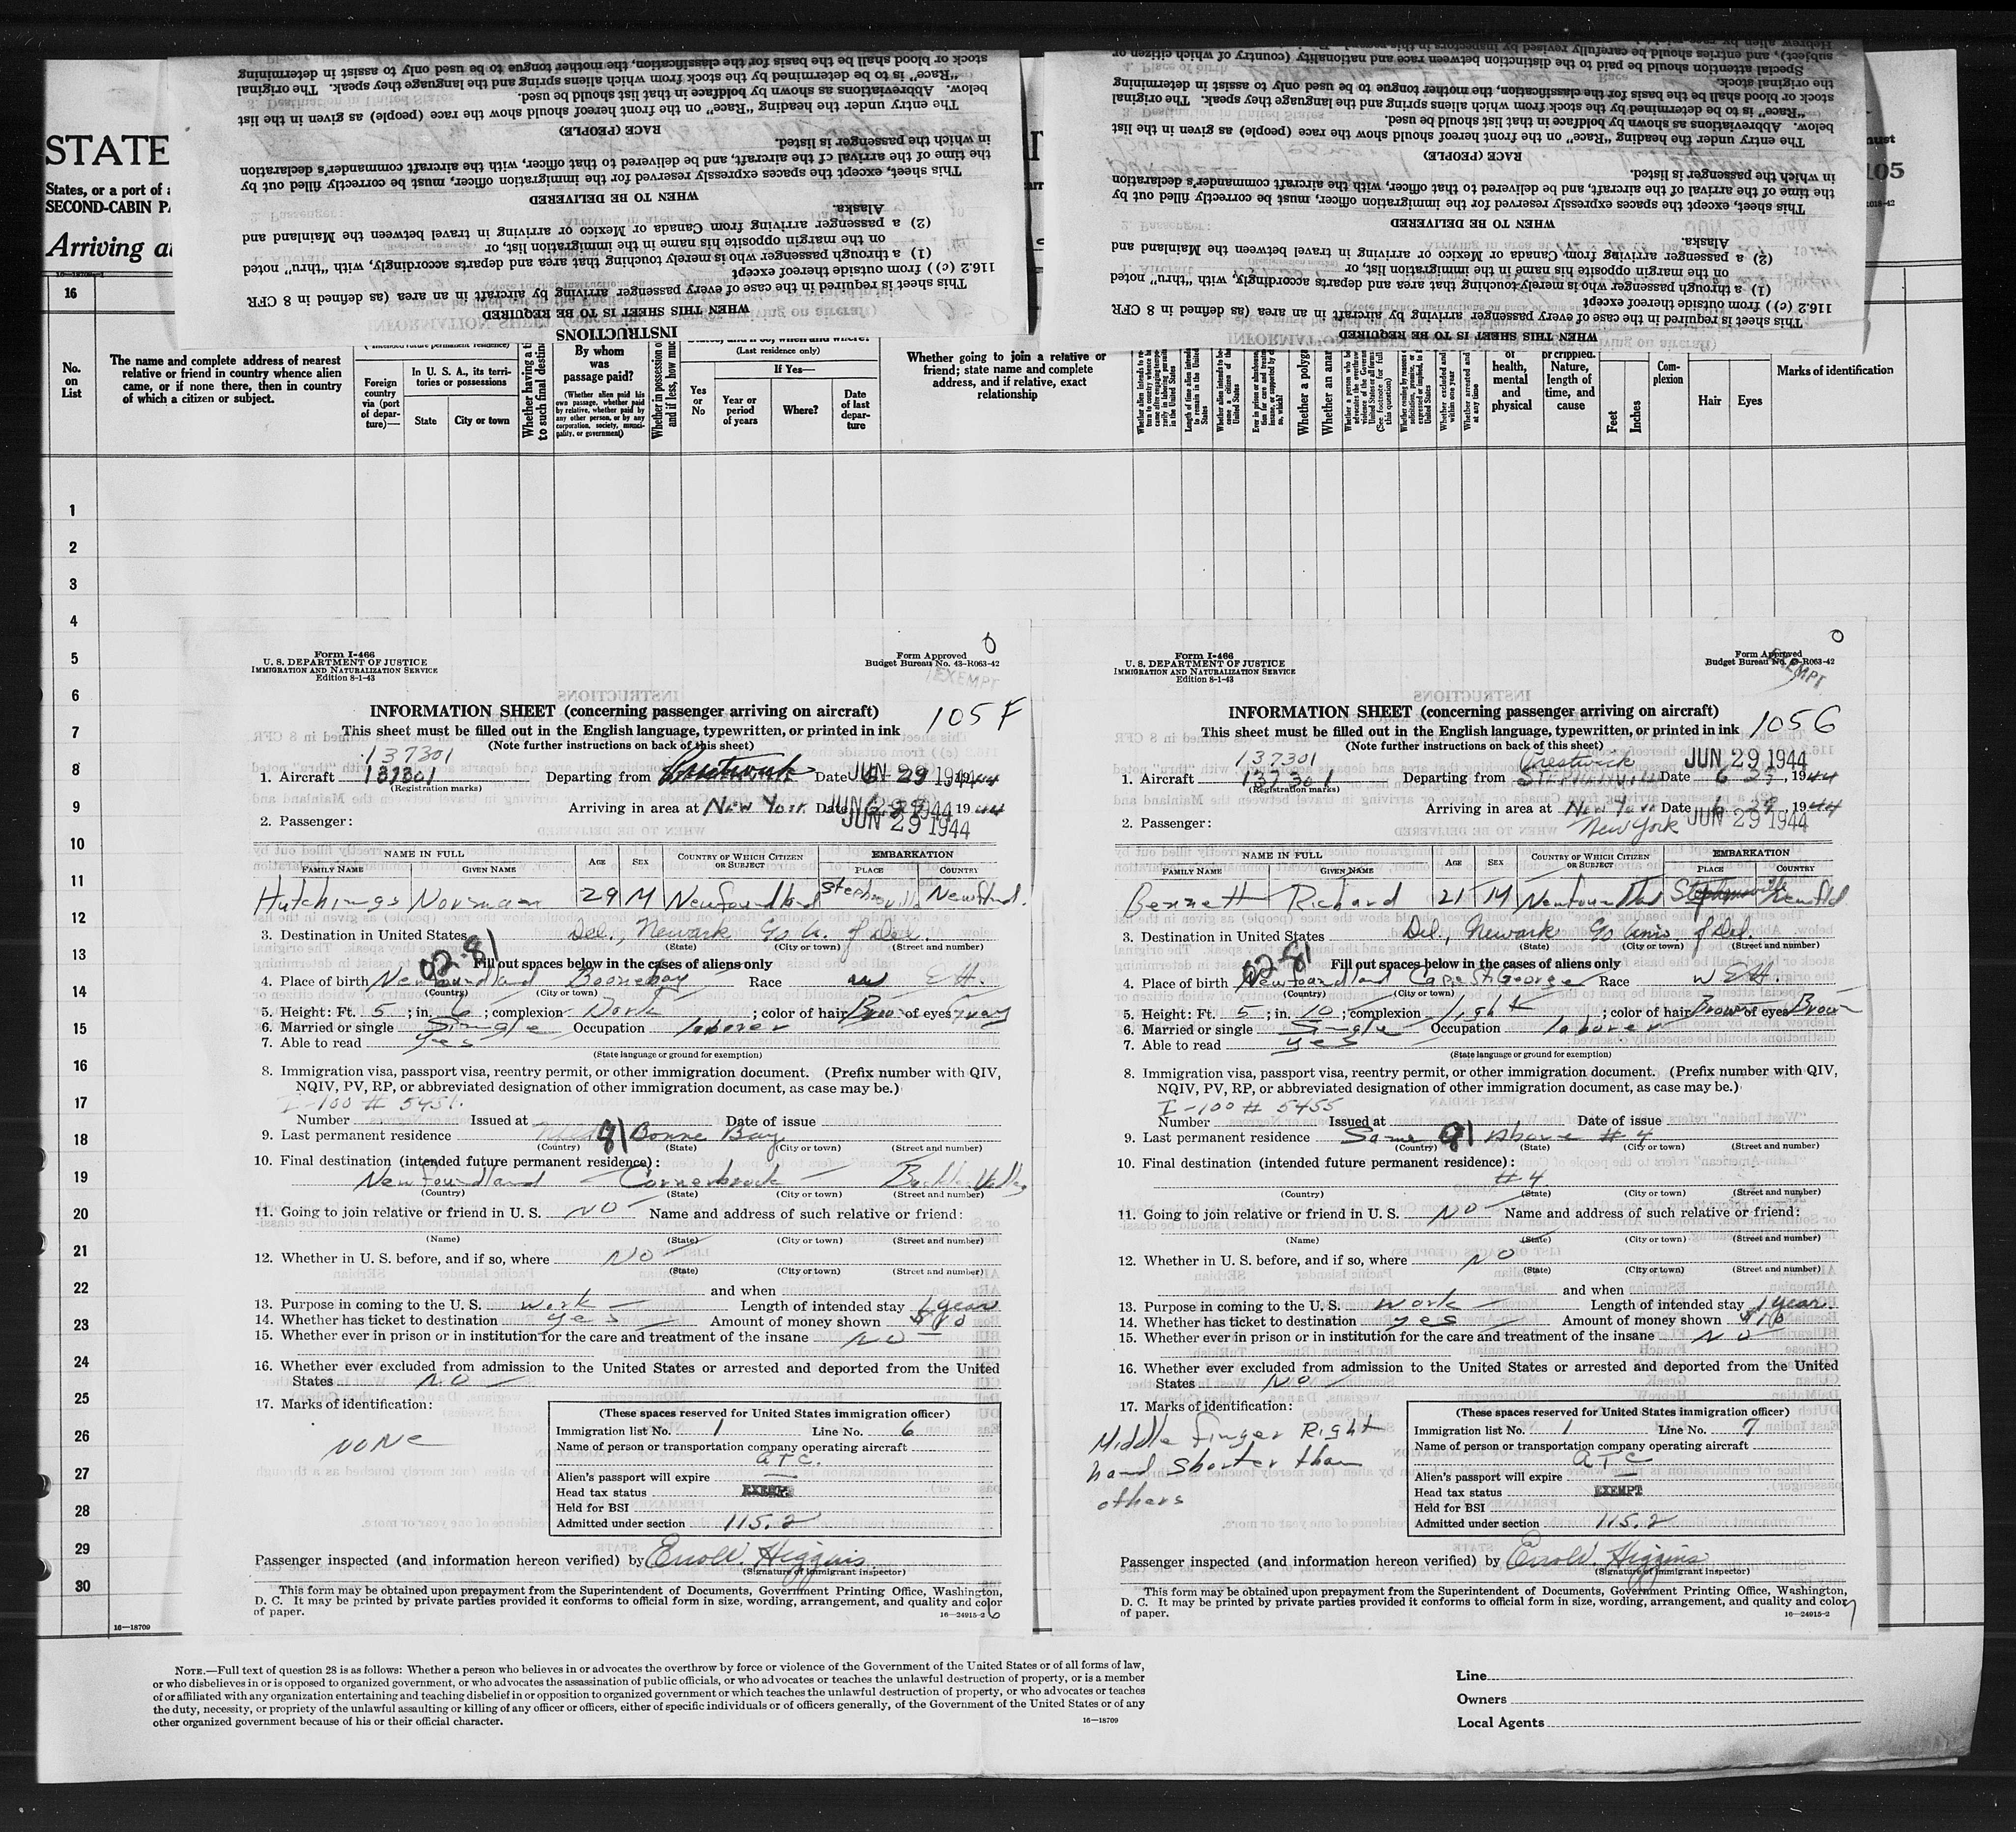 STATE
States, or a port of
SECOND-CABIN
Arriving at
105
INSTRUCTIONS
WHEN THIS SHEET IS TO BE REQUIRED
This sheet is required in the case of every passenger arriving by aircraft in an area (as defined in 8 CFR
116.2 (c)) from outside thereof except
(1) a through passenger who is merely touching that area and departs accordingly, with "thru" noted
on the margin opposite his name in the immigration list, or
(2) a passenger arriving from Canada or Mexico or arriving in travel between the Mainland and
Alaska.
WHEN TO BE DELIVERED
This sheet, except the spaces expressly reserved for the immigration officer, must be correctly filled out by
the time of the arrival of the aircraft, and be delivered to that officer, with the aircraft commander's declaration
in which the passenger is listed.
RACE (PEOPLE)
The entry under the heading "Race" on the front hereof should show the race (people) as given in the list
below. Abbreviations as shown by boldface in that list should be used.
"Race" is to be determined by the stock from which aliens spring and the language they speak. The original
stock or blood shall be the basis for the classification, the mother tongue to be used only to assist in determining
WHEN THIS SHEET IS TO BE REQUIRED
This sheet is required in the case of every passenger arriving by aircraft in an area (as defined in 8 CFR
116.2 (c)) from outside thereof except
(1) a through passenger who is merely touching that area and departs accordingly, with "thru" noted
on the margin opposite his name in the immigration list, or
(2) a passenger arriving from Canada or Mexico or arriving in travel between the Mainland and
Alaska.
WHEN TO BE DELIVERED
This sheet, except the spaces expressly reserved for the immigration officer, must be correctly filled out by
the time of the arrival of the aircraft, and be delivered to that officer, with the aircraft commander's declaration
in which the passenger is listed.
RACE (PEOPLE)
The entry under the heading "Race" on the front hereof should show the race (people) as given in the list
below. Abbreviations as shown by boldface in that list should be used.
"Race" is to be determined by the stock from which aliens spring and the language they speak. The original
stock or blood shall be the basis for the classification, the mother tongue to be used only to assist in determining
the original stock.
Special attention should be paid to the distinction between race and nationality (country of which citizen or
subject), and entries should be carefully revised by inspectors in this regard.
16
No. on List
The name and complete address of nearest
relative or friend in country whence alien
came, or if none there, then in country
of which a citizen or subject.
Foreign country via (port of departure)—
In U. S. A., its territories or possessions
State
City or town
By whom was passage paid?
(Whether alien paid his own passage, whether paid by relative, whether paid by any other person, or by any corporation, society, municipality, or government)
(Last residence only)
Yes or No
If Yes—
Year or period of years
Where?
Date of last departure
Whether going to join a relative or
friend; state name and complete
address, and if relative, exact
relationship
health, mental and physical
or crippled. Nature, length of time, and cause
Feet
Inches
Complexion
Hair
Eyes
Marks of identification
1
2
3
4
5
6
7
8
9
10
11
12
13
14
15
16
17
18
19
20
21
22
23
24
25
26
27
28
29
30
16—18709
Form I-466
U. S. DEPARTMENT OF JUSTICE
IMMIGRATION AND NATURALIZATION SERVICE
Edition 8-1-43
0
Form Approved
Budget Bureau No. 43-R063-42
EXEMPT
INFORMATION SHEET (concerning passenger arriving on aircraft)
105 F
This sheet must be filled out in the English language, typewritten, or printed in ink
(Note further instructions on back of this sheet)
137301
1. Aircraft 137301 Departing from Date 6-29 1944 JUN 29 1944
(Registration marks)
Arriving in area at New York Date 6 29 1944 JUN 29 1944
JUN 29 1944
2. Passenger:
NAME IN FULL AGE SEX COUNTRY OF WHICH CITIZEN OR SUBJECT EMBARKATION
FAMILY NAME GIVEN NAME PLACE COUNTRY
Hutchings Norman 29 M Newfoundland Stephenville Newfland.
3. Destination in United States Del., Newark Go U. of Del.
(State) (City or town) (Street and number)
02-81
Fill out spaces below in the cases of aliens only
4. Place of birth Newfoundland Boonebay Race w EH.
(Country) (City or town)
5. Height: Ft. 5; in. 6; complexion Dark; color of hair Brow of eyes Gray
6. Married or single Single Occupation laborer
7. Able to read yes
(State language or ground for exemption)
8. Immigration visa, passport visa, reentry permit, or other immigration document. (Prefix number with QIV,
NQIV, PV, RP, or abbreviated designation of other immigration document, as case may be.)
I-100 # 5451.
Number Issued at Date of issue
9. Last permanent residence 81 Bonne Bay
(Country) (State) (City or town) (Street and number)
10. Final destination (intended future permanent residence):
Newfoundland Cornerbrook
(Country) (State) (City or town) (Street and number)
11. Going to join relative or friend in U. S. NO Name and address of such relative or friend:
(Name) (State) (City or town) (Street and number)
12. Whether in U. S. before, and if so, where NO
(State) (City or town) (Street and number)
and when
13. Purpose in coming to the U. S. work Length of intended stay 1 year
14. Whether has ticket to destination yes Amount of money shown $10
15. Whether ever in prison or in institution for the care and treatment of the insane NO
16. Whether ever excluded from admission to the United States or arrested and deported from the United
States NO
17. Marks of identification:
NONE
(These spaces reserved for United States immigration officer)
Immigration list No. 1 Line No. 6
Name of person or transportation company operating aircraft
ATC.
Alien's passport will expire —
Head tax status EXEMPT
Held for BSI
Admitted under section 115.2
Passenger inspected (and information hereon verified) by Errol W. Higgins
(Signature of immigrant inspector)
This form may be obtained upon prepayment from the Superintendent of Documents, Government Printing Office, Washington,
D. C. It may be printed by private parties provided it conforms to official form in size, wording, arrangement, and quality and color
of paper.
16—24915-2
6
Form I-466
U. S. DEPARTMENT OF JUSTICE
IMMIGRATION AND NATURALIZATION SERVICE
Edition 8-1-43
0
Form Approved
Budget Bureau No. 43-R063-42
EXEMPT
INFORMATION SHEET (concerning passenger arriving on aircraft)
105 G
This sheet must be filled out in the English language, typewritten, or printed in ink
(Note further instructions on back of this sheet)
137301 Prestwick JUN 29 1944
1. Aircraft 137301 Departing from Stephenville Date 6 29, 1944
(Registration marks)
Arriving in area at New York Date 6 29, 1944
New York JUN 29 1944
2. Passenger:
NAME IN FULL AGE SEX COUNTRY OF WHICH CITIZEN OR SUBJECT EMBARKATION
FAMILY NAME GIVEN NAME PLACE COUNTRY
Bennett Richard 21 M Newfoundland Stephensville Newfld
3. Destination in United States Del., Newark Go Univ. of Del.
(State) (City or town) (Street and number)
02-81
Fill out spaces below in the cases of aliens only
4. Place of birth Newfoundland Cape St. George Race w EH.
(Country) (City or town)
5. Height: Ft. 5; in. 10; complexion light; color of hair Brown of eyes Brown
6. Married or single Single Occupation laborer
7. Able to read yes
(State language or ground for exemption)
8. Immigration visa, passport visa, reentry permit, or other immigration document. (Prefix number with QIV,
NQIV, PV, RP, or abbreviated designation of other immigration document, as case may be.)
I-100 # 5455
Number Issued at Date of issue
9. Last permanent residence Same 81 Above #4
(Country) (State) (City or town) (Street and number)
10. Final destination (intended future permanent residence):
#4
(Country) (State) (City or town) (Street and number)
11. Going to join relative or friend in U. S. NO Name and address of such relative or friend:
(Name) (State) (City or town) (Street and number)
12. Whether in U. S. before, and if so, where NO
(State) (City or town) (Street and number)
and when
13. Purpose in coming to the U. S. work Length of intended stay 1 year.
14. Whether has ticket to destination yes Amount of money shown $10
15. Whether ever in prison or in institution for the care and treatment of the insane NO
16. Whether ever excluded from admission to the United States or arrested and deported from the United
States NO
17. Marks of identification:
Middle finger Right
hand Shorter than
others
(These spaces reserved for United States immigration officer)
Immigration list No. 1 Line No. 7
Name of person or transportation company operating aircraft
ATC
Alien's passport will expire —
Head tax status EXEMPT
Held for BSI
Admitted under section 115.2
Passenger inspected (and information hereon verified) by Errol W. Higgins
(Signature of immigrant inspector)
This form may be obtained upon prepayment from the Superintendent of Documents, Government Printing Office, Washington,
D. C. It may be printed by private parties provided it conforms to official form in size, wording, arrangement, and quality and color
of paper.
16—24915-2
7
NOTE.—Full text of question 28 is as follows: Whether a person who believes in or advocates the overthrow by force or violence of the Government of the United States or of all forms of law,
or who disbelieves in or is opposed to organized government, or who advocates the assassination of public officials, or who advocates or teaches the unlawful destruction of property, or is a member
of or affiliated with any organization entertaining and teaching disbelief in or opposition to organized government or which teaches the unlawful destruction of property, or who advocates or teaches
the duty, necessity, or propriety of the unlawful assaulting or killing of any officer or officers, either of specific individuals or of officers generally, of the Government of the United States or of any
other organized government because of his or their official character.
16—18709
Line
Owners
Local Agents